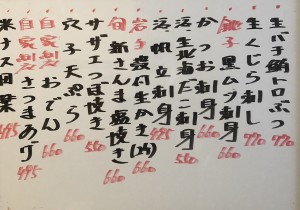 生バチ鮪トロぶつ 770
生くじら刺し 770
銚子 黒ムツ刺身 660
かつお刺身 660
活〆生北海だこ刺身
活帆立刺身 495
岩手 殻付生かき(内) 660
旬 新さんま塩焼き 660
サザエつぼ焼き 550
穴子天ぷら 660
自家製 おでん 660
自家製 さつまあげ 495
米ナス田楽 495